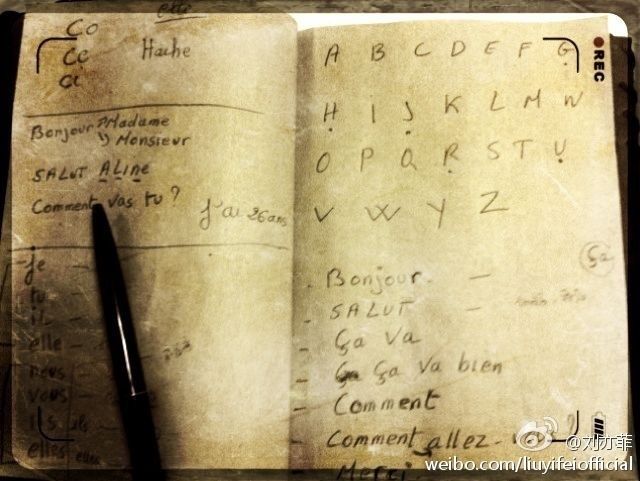 Co
Ce
Hache
Ci
Bonjour Madame
Monsieur
SALUT ALine
Comment vas tu ?
J'ai 26 ans
je
tu
il
elle
nous
vous
ils
elles
A B C D E F G
H i J K L M N
O P Q R S T U
V W Y Z
Ça
- Bonjour. -
- SALUT -
- Ça Va
- Ça Va bien
- Comment
- Comment allez-
- Merci
REC
@刘亦菲
weibo.com/liuyifeiofficial